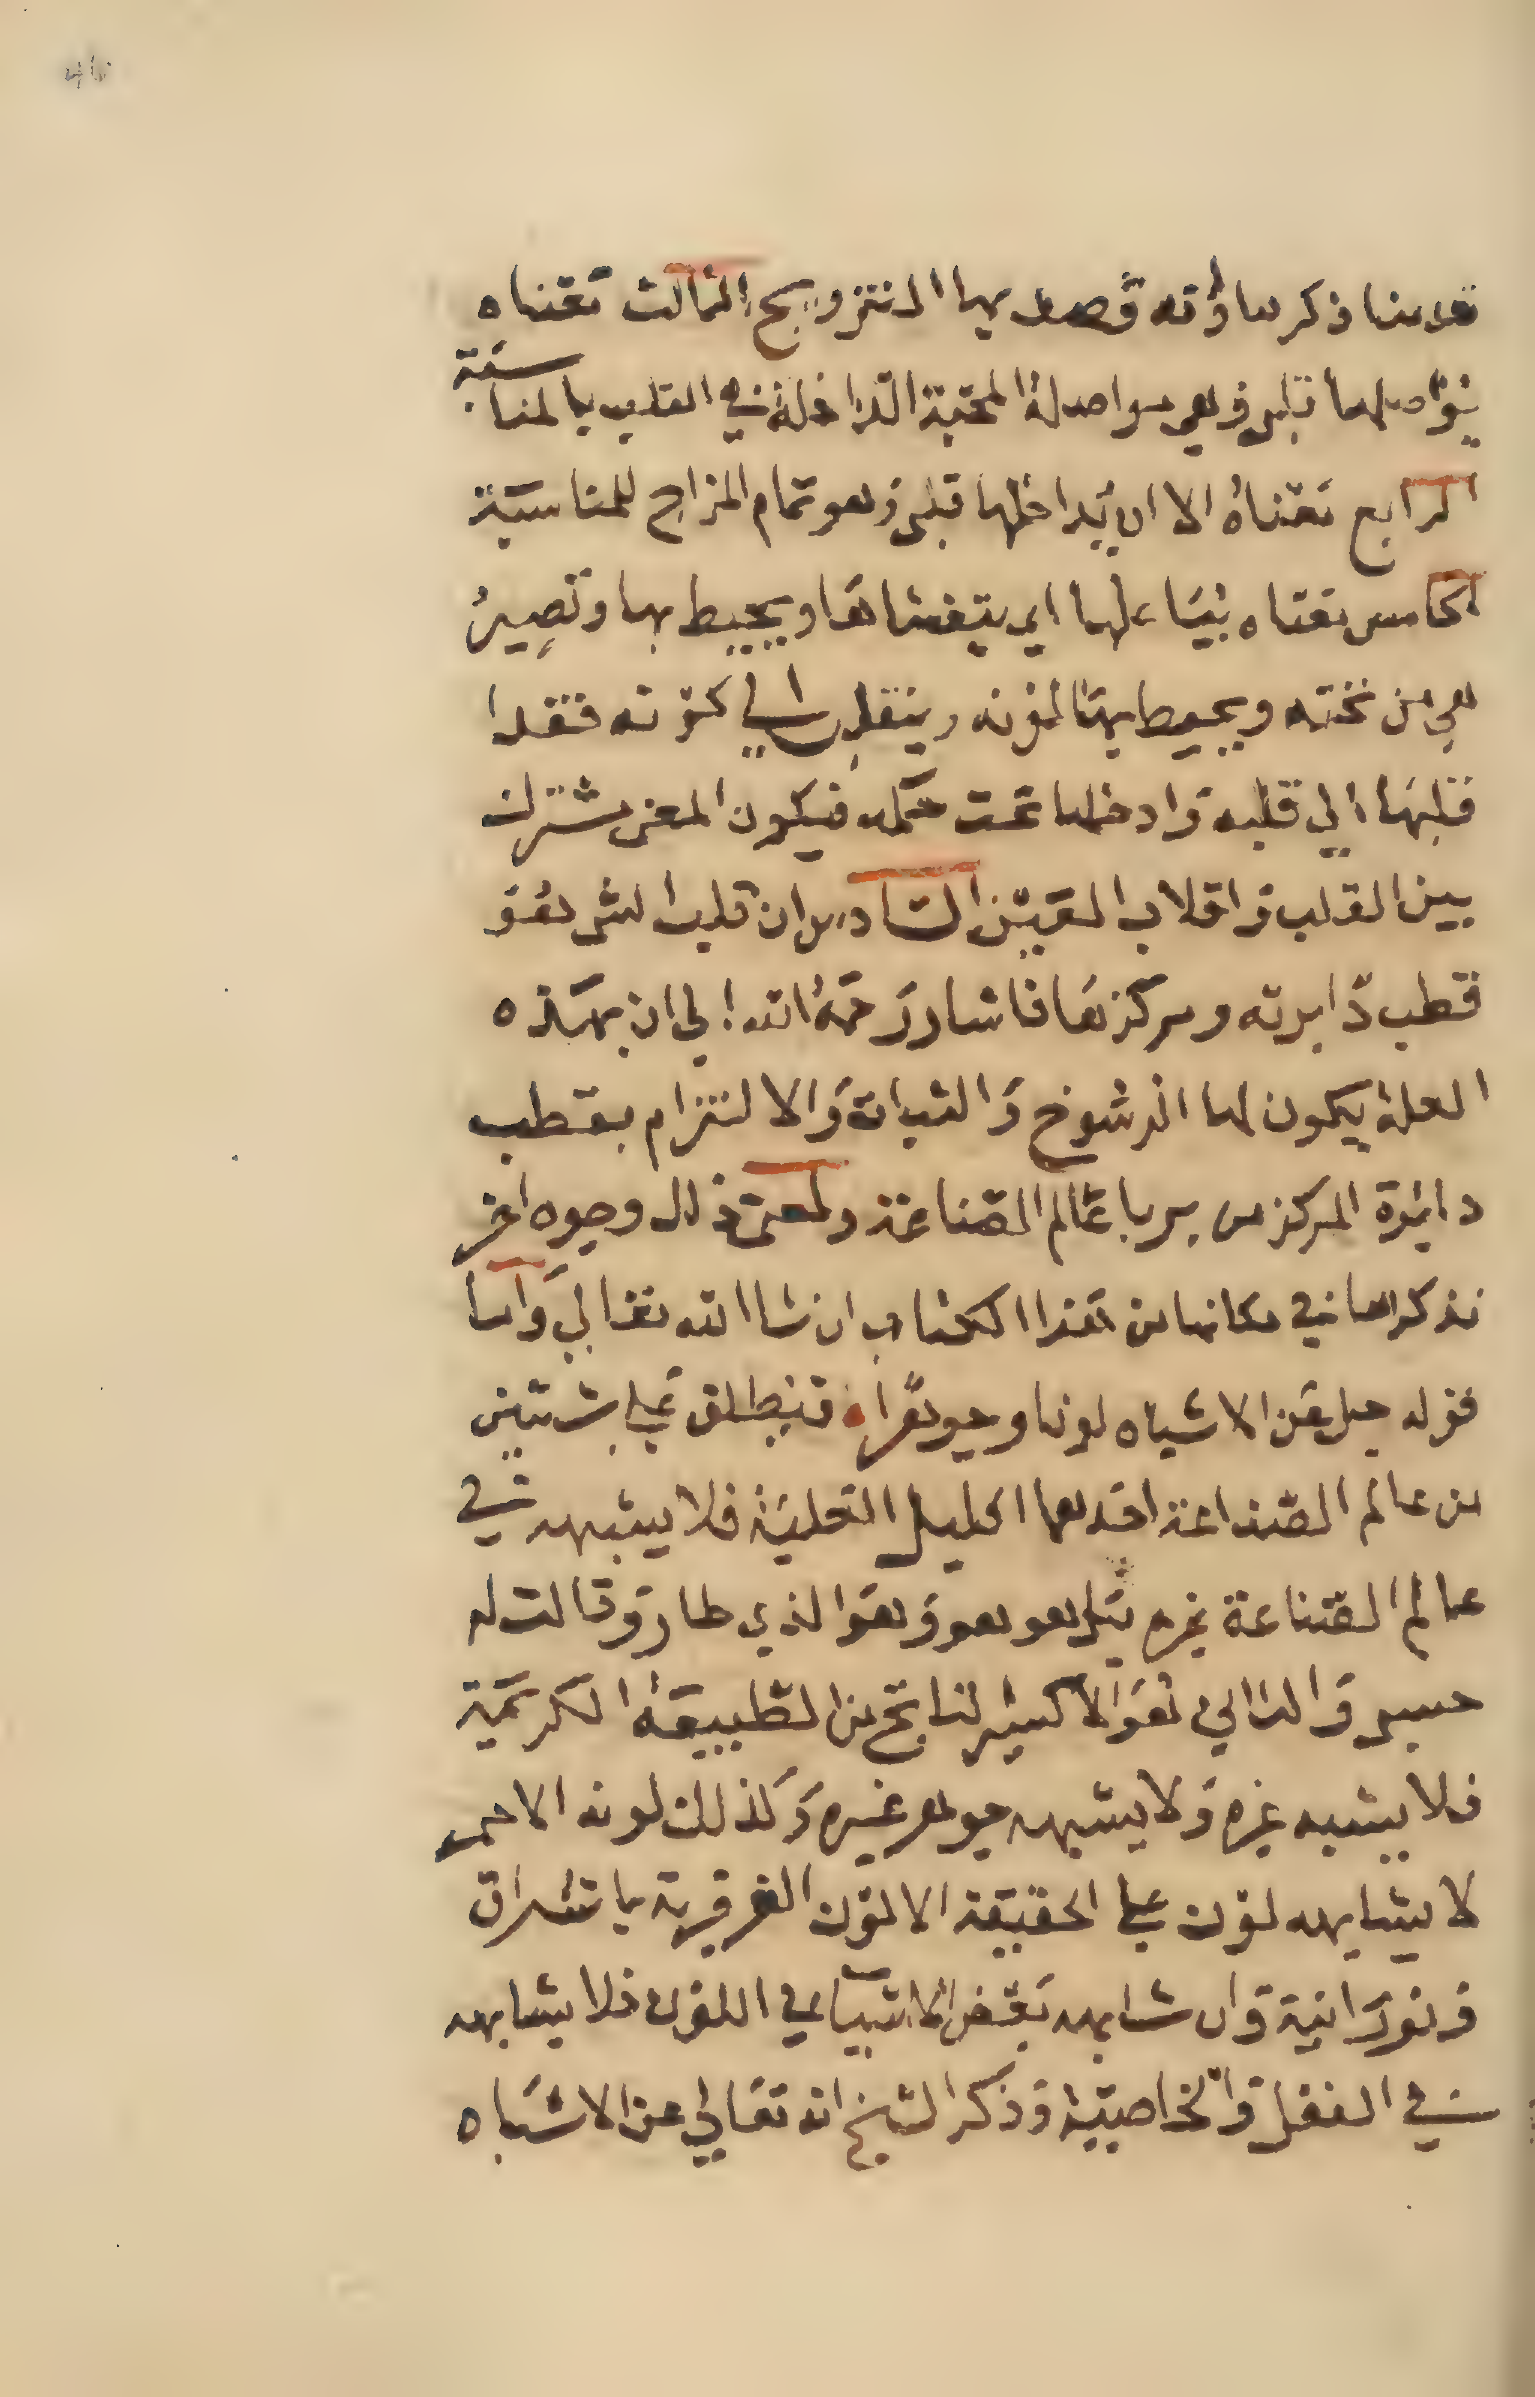 قدمنا ذكرها وقد قصد بها التزويج الثالث معناه
يواصلها قلبي وهي مواصلة المحبة الداخلة في القلب بالمناسبة
الرابع معناه الا ان يداخلها قلبي وهو تمام المزاج للمناسبة
الخامس معناه يغشاها اي يتغشاها ويحيط بها وتصير
هي من تحته ويحيط بها لونه وينقلب الي كونه فقد
قلبها الي قلبه وادخلها تحت حكمه فيكون المعني مشترك
بين القلب واقلاب العين السادس ان قلب الشي هو
قطب دايرته ومركزها فاشار رحمه الله الي ان بهذه
العلة يكون لها الرسوخ والثبات والالتزام بقطب
دائرة المركز من بربا عالم الصناعة ولمعنى ذلك وجوه اخر
نذكرها في مكانها من هذا الكتاب ان شا الله تعالي واما
قوله جل عن الاشباه لونا وجوهرا فينطلق علي شيئين
من عالم الصناعة احدهما الجليل فلا يشبهه في
عالم الصناعة غيره بل هو هو وهو الذي طار وقالت له
والثاني هو الاكسير الناتج من الطبيعة الكريمة
فلا يشبه غيره ولا يشبهه جوهر غيره وكذلك لونه الاحمر
لا يشابهه لون علي الحقيقة الا لون الفرفرية باشراق
ونورانية وان شابهه بعض الاشيا في اللون فلا يشابهه
في الفعل والخاصية وذكر الشيخ انه تعالي عن الاشباه